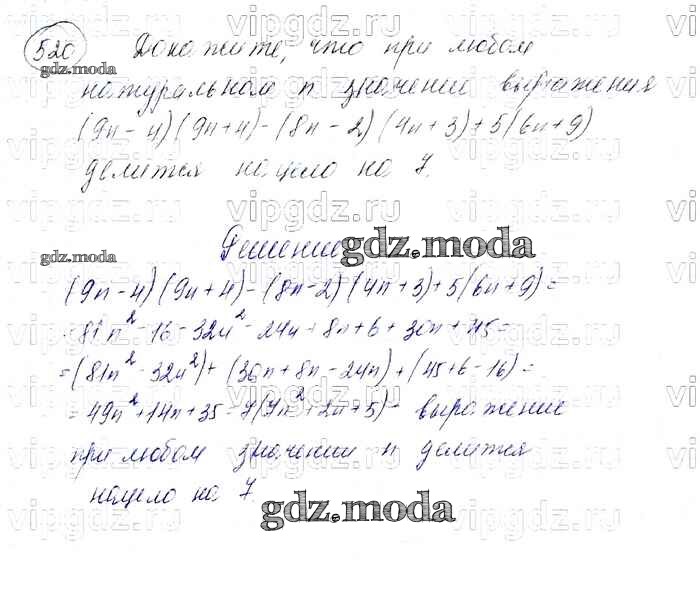 520 Докажите, что при любом
натуральном n значении выражения
(9n - 4)(9n + 4) - (8n - 2)(4n + 3) + 5(6n + 9)
делится нацело на 7.
Решение
(9n - 4)(9n + 4) - (8n - 2)(4n + 3) + 5(6n + 9) =
= 81n² - 16 - 32n² - 24n + 8n + 6 + 30n + 45 =
= (81n² - 32n²) + (30n + 8n - 24n) + (45 + 6 - 16) =
= 49n² + 14n + 35 = 7(7n² + 2n + 5) - выражение
при любом значении n делится
нацело на 7.
gdz.moda
gdz.moda
gdz.moda
gdz.moda
vipgdz.ru